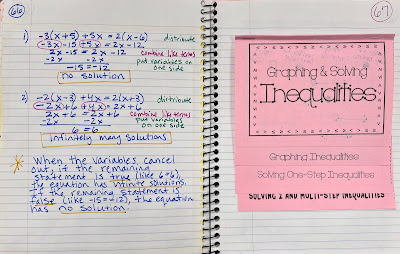 66
1) -3(x+5)+5x = 2(x-6) distribute
-3x-15+5x = 2x-12
2x-15 = 2x-12 combine like terms
-2x -2x put variables on one side
-15 = -12
no solution
2) -2(x-3)+4x = 2(x+3) distribute
-2x+6+4x = 2x+6
2x+6 = 2x+6 combine like terms
-2x -2x put variables on one side
6 = 6
infinitely many solutions
* When the variables cancel
out, if the remaining
statement is true (like 6=6),
the equation has infinite solutions.
If the remaining statement is
false (like -15=-12), the equation
has no solution.
67
Graphing & Solving
Inequalities
Graphing Inequalities
Solving One-Step Inequalities
SOLVING 2 AND MULTI-STEP INEQUALITIES